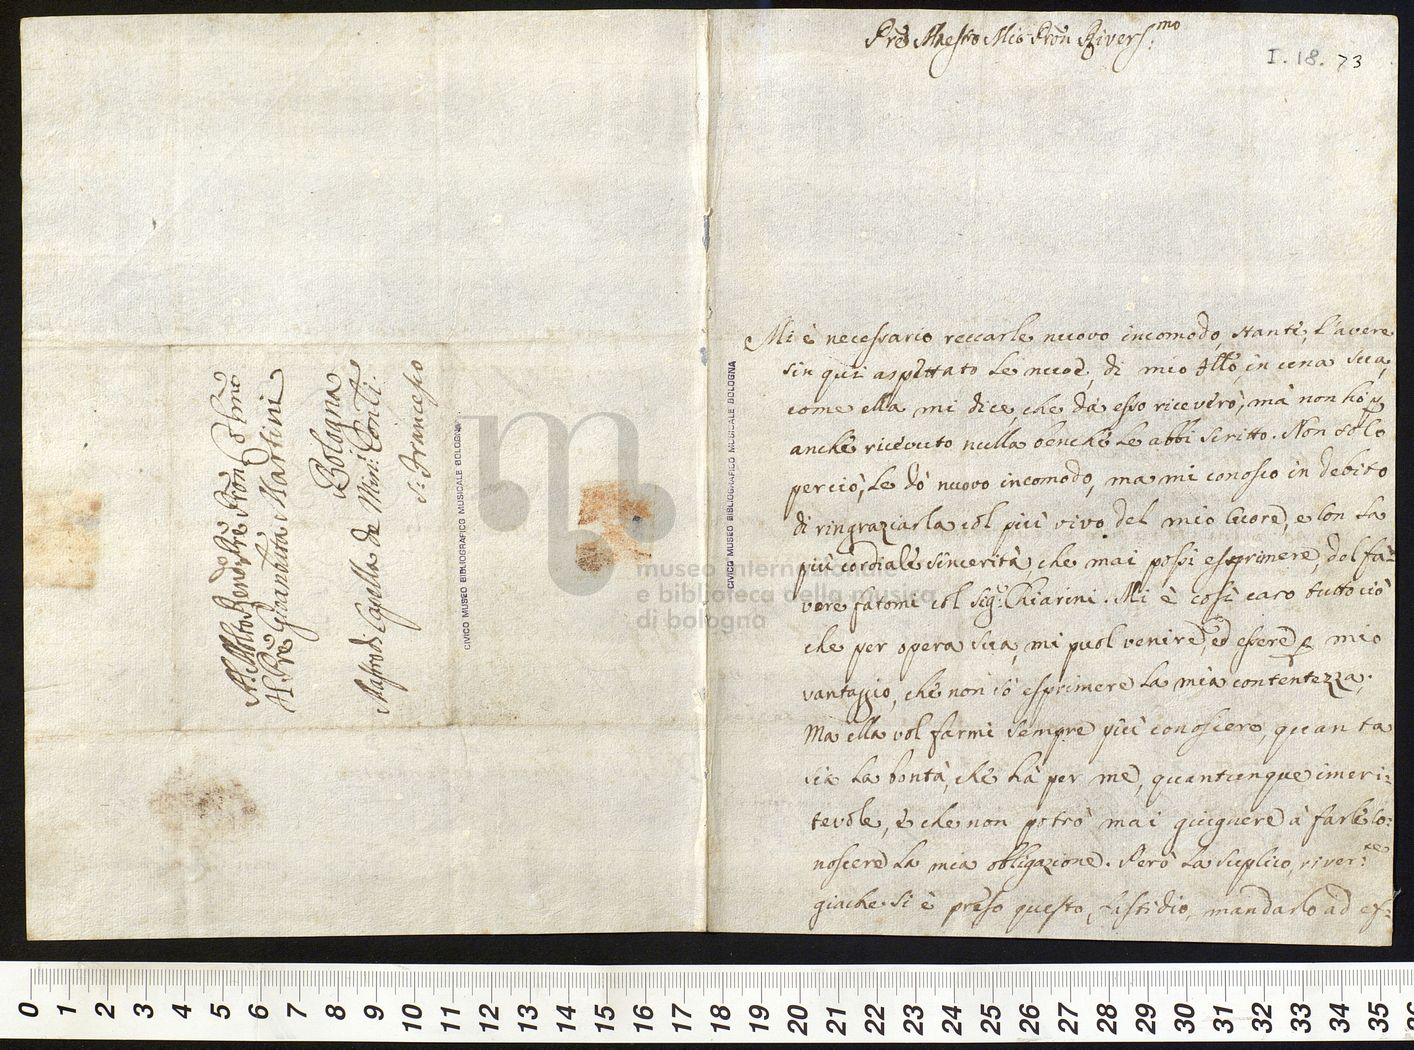 Al Molto Revdo Pre Pron Colmo
Il Pre Giambatta Martini
Bologna
Mastro di Capella de Min: Conti:
S: Francesco
CIVICO MUSEO BIBLIOGRAFICO MUSICALE BOLOGNA
museo internazionale
e biblioteca della musica
di bologna
Pre Maestro Mio Pron Rivers:mo
I. 18. 73
CIVICO MUSEO BIBLIOGRAFICO MUSICALE BOLOGNA
Mi è necessario reccarle nuovo incomodo, stantè, l'avere
sin qui aspettato le nuove, di mio in una sua,
come ella mi dice che dà esso riceverò, mà non hò p
anchè ricevuto nulla benchè le abbi scritto. Non solo
perciò, le dò nuovo incomodo, ma mi conosco in debito
di ringraziarla col più vivo del mio Cuore, e con la
più cordiale sincerità che mai possi esprimere, dol fa-
vore fatomi col Sig: Chiarini. Mi è così caro tutto ciò
che per opera sua, mi puol venire, ed essere p mio
vantaggio, che non sò esprimere la mia contentezza;
Ma ella vol farmi sempre più conoscere, quanta
sia la bontà, che hà per me, quantunque imeri:
tevole, è che non potrò mai giugnere à farle co:
noscere la mia obbligazione. Però la suplico, river:te
giache si è preso questo, fastidio, mandarlo ad ef:
0 1 2 3 4 5 6 7 8 9 10 11 12 13 14 15 16 17 18 19 20 21 22 23 24 25 26 27 28 29 30 31 32 33 34 35